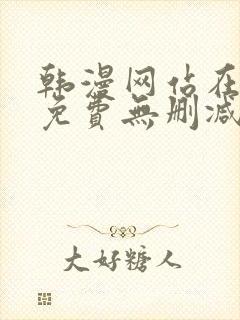 韩漫网站在
免費無删减
大好糖人